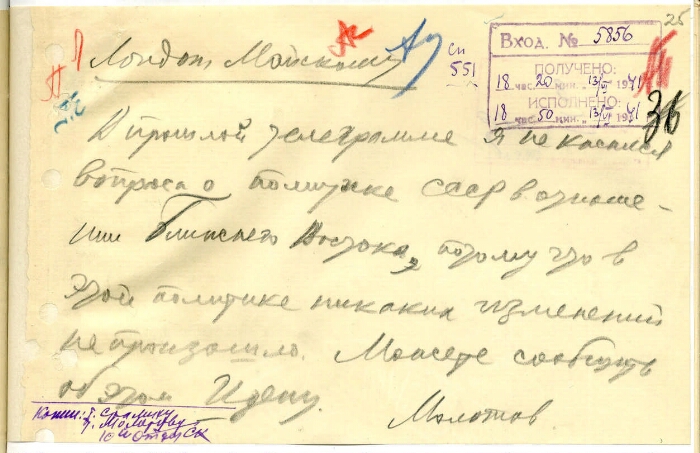 25
Вход. № 5856
ПОЛУЧЕНО:
18 час. 20 мин. „13/VI 1941
ИСПОЛНЕНО:
18 час. 50 мин. „13/VI 1941
36
551
Лондон, Майскому
В прошлой телеграмме я не касался
вопроса о политике СССР в отноше-
нии Ближнего Востока, потому что в
этой политике никаких изменений
не произошло. Можете сообщить
об этом Идену.
Молотов
Копии: т. Сталину
т. Молотову